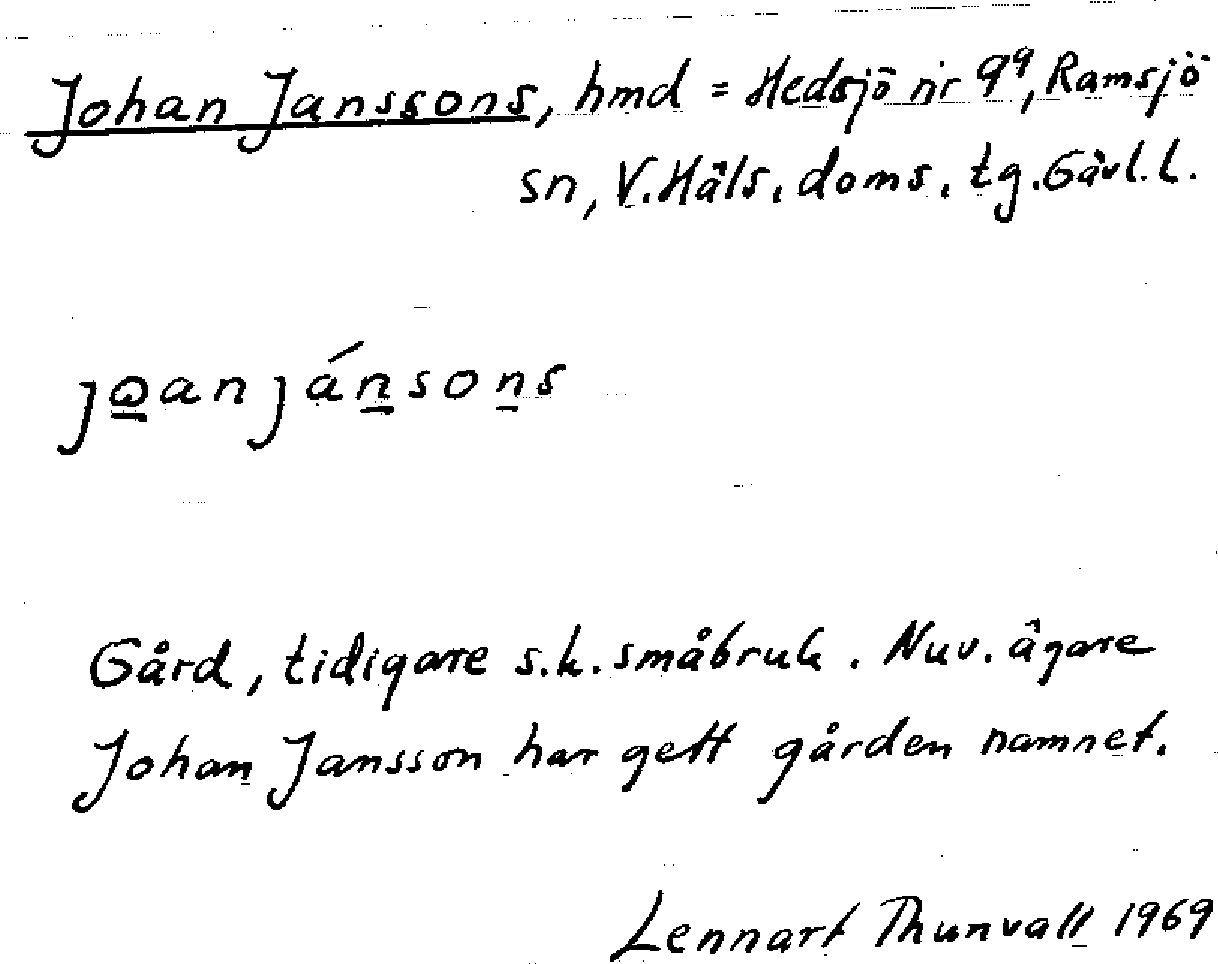 Johan Janssons, hmd = Hedsjö nr 9⁹, Ramsjö
sn, V.Häls. doms. tg. Gävl.l.
jo̲anján̲son̲s
Gård, tidigare s.k. småbruk. Nuv. ägare
Johan Jansson har gett gården namnet.
Lennart Thunvall 1969